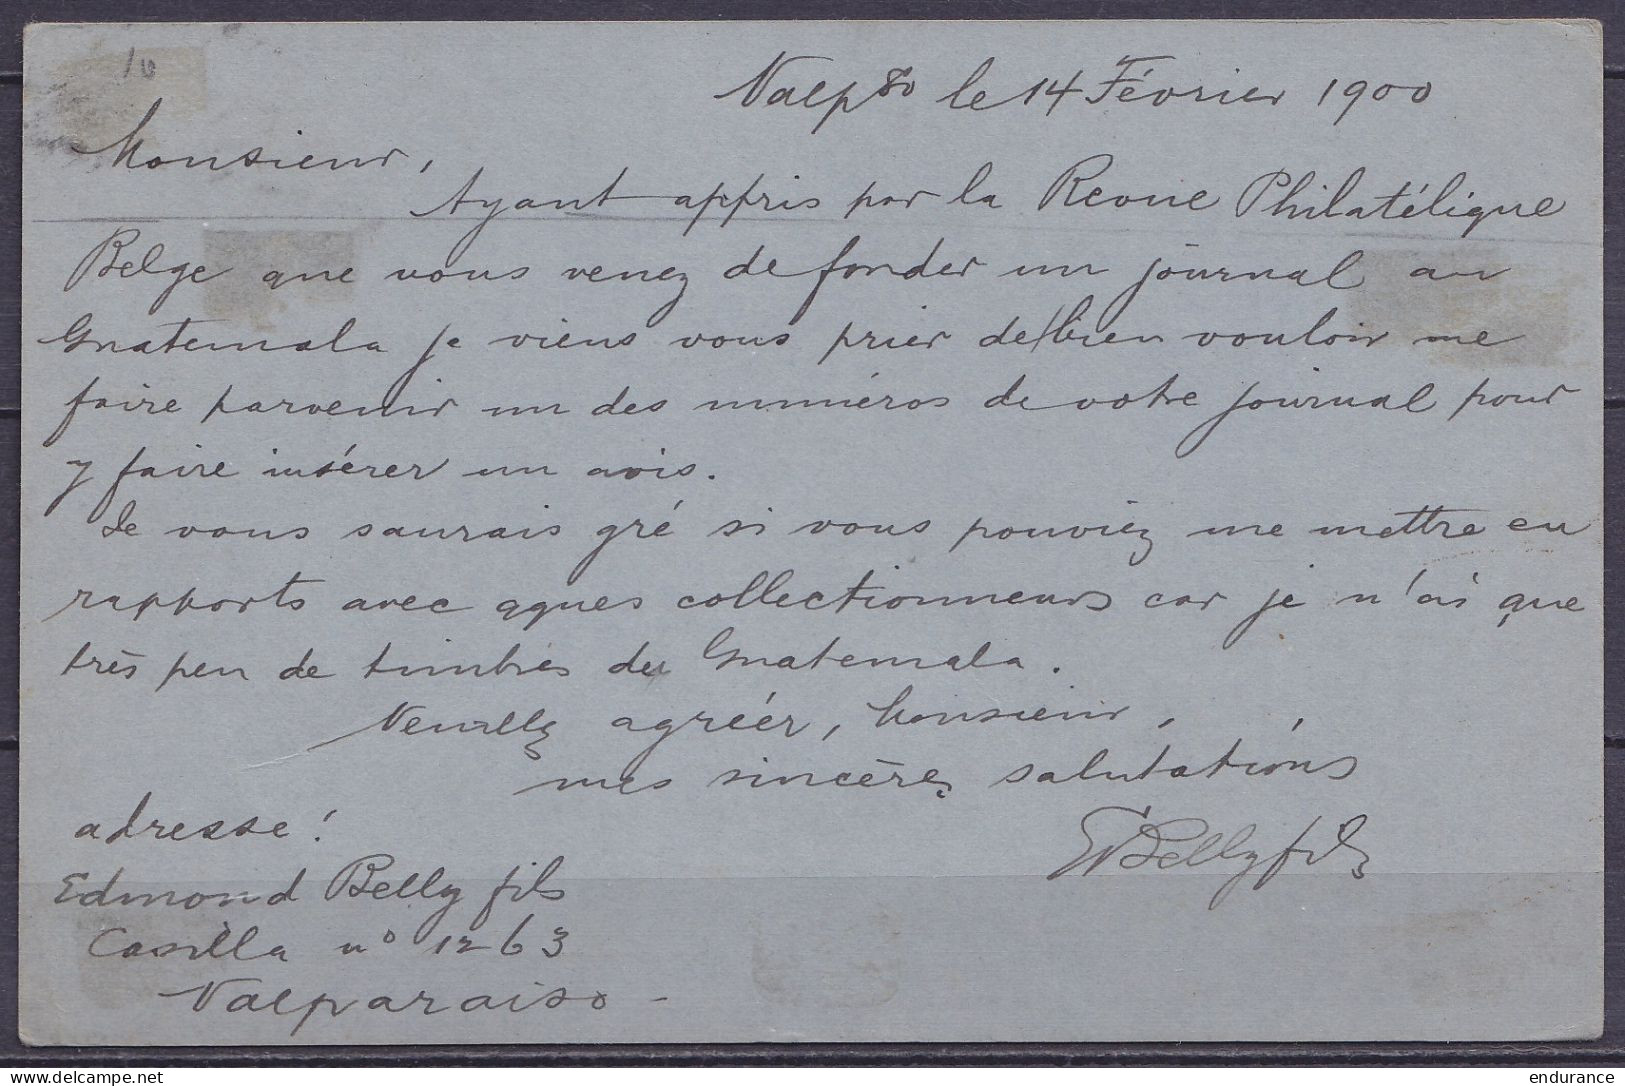 Valpso le 14 Février 1900
Monsieur,
Ayant appris par la Revue Philatélique
Belge que vous venez de fonder un journal au
Guatemala je viens vous prier de bien vouloir me
faire parvenir un des numéros de votre journal pour
y faire insérer un avis.
Je vous saurais gré si vous pouviez me mettre en
rapports avec qques collectionneurs car je n'ai que
très peu de timbres du Guatemala.
Veuillez agréer, Monsieur,
mes sincères salutations
E Belly fils
adresse:
Edmond Belly fils
Casilla no 1263
Valparaiso -
delcampe.net
endurance